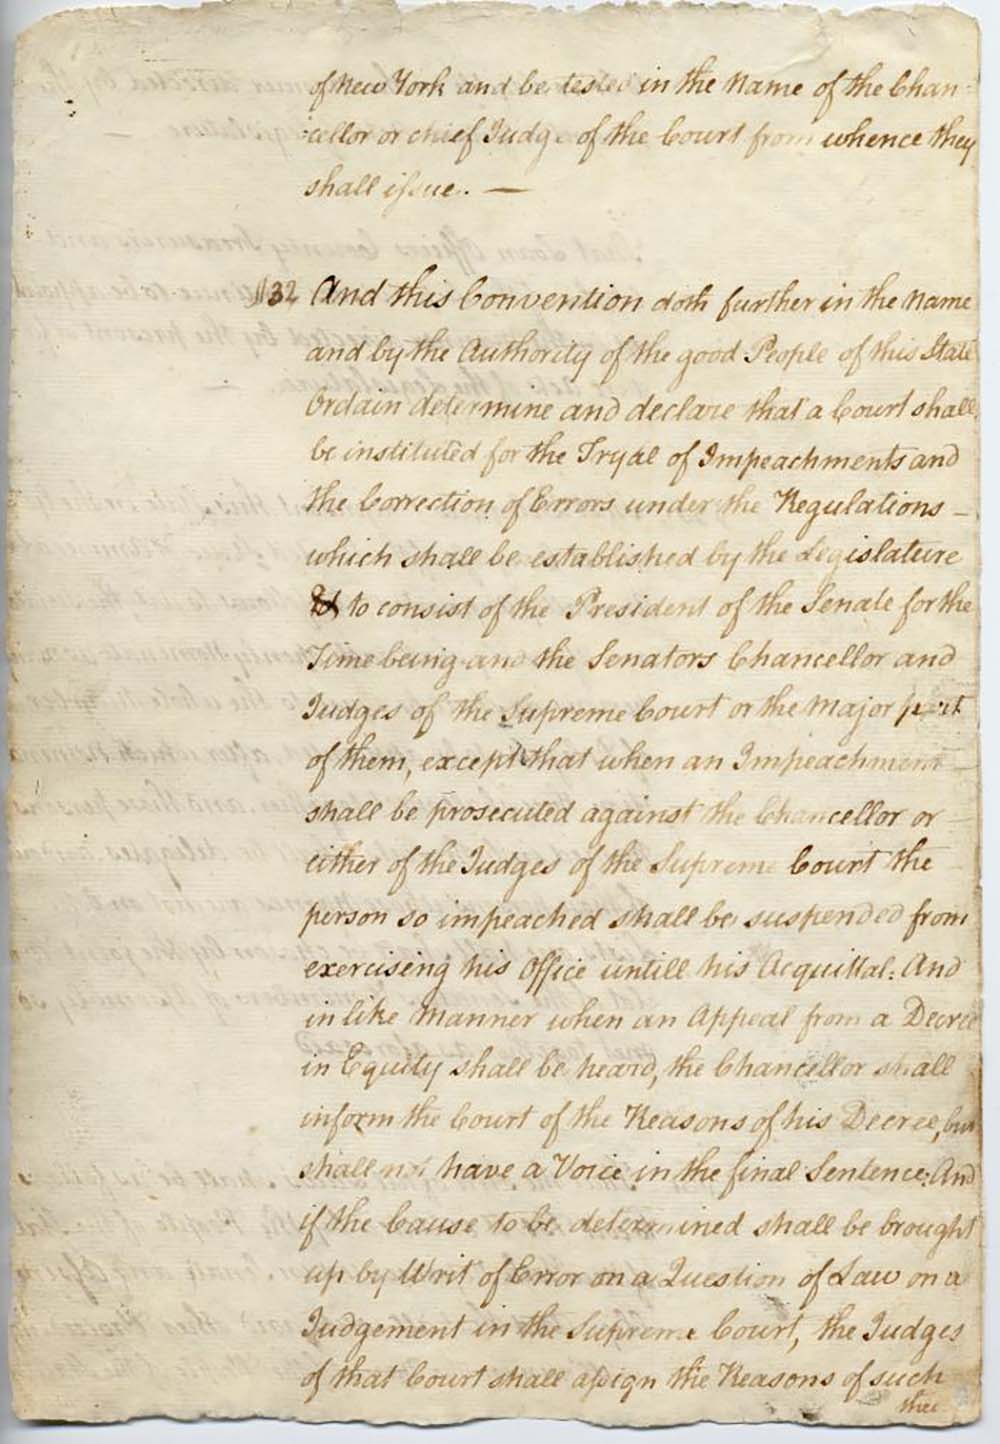 of New York and be tested in the Name of the Chan=
=cellor or chief Judge of the Court from whence they
shall issue. —
32 And this Convention doth further in the Name
and by the Authority of the good People of this State
Ordain determine and declare that a Court shall
be instituted for the Tryal of Impeachments and
the Correction of Errors under the Regulations —
which shall be established by the Legislature
to consist of the President of the Senate for the
Time being and the Senators Chancellor and
Judges of the Supreme Court or the Major part
of them, except that when an Impeachment
shall be prosecuted against the Chancellor or
either of the Judges of the Supreme Court the
person so impeached shall be suspended from
exercising his Office untill his Acquittal: And
in like Manner when an Appeal from a Decree
in Equity shall be heard, the Chancellor shall
inform the Court of the Reasons of his Decree, but
shall not have a Voice in the final Sentence: And
if the Cause to be determined shall be brought
up by Writ of Error on a Question of Law on a
Judgement in the Supreme Court, the Judges
of that Court shall assign the Reasons of such